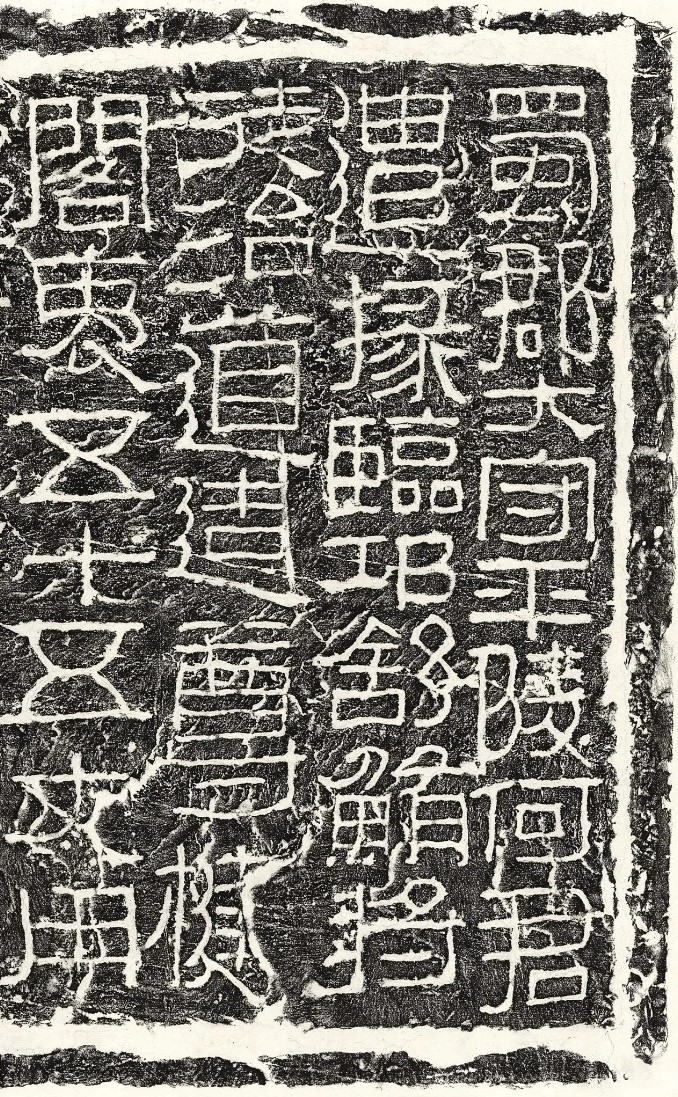 蜀郡大守平陵何君
遣掾臨邛舒鮪將
徒治道造尊楗
閣袤五十五丈用